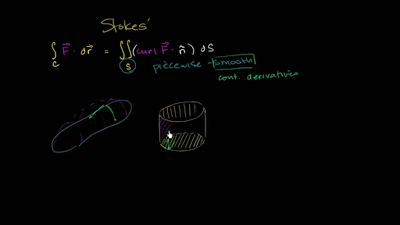 Stokes'
∫ F⃗ · dr⃗ = ∬ (curl F⃗ · n̂) dS
C S piecewise - smooth
cont. derivatives